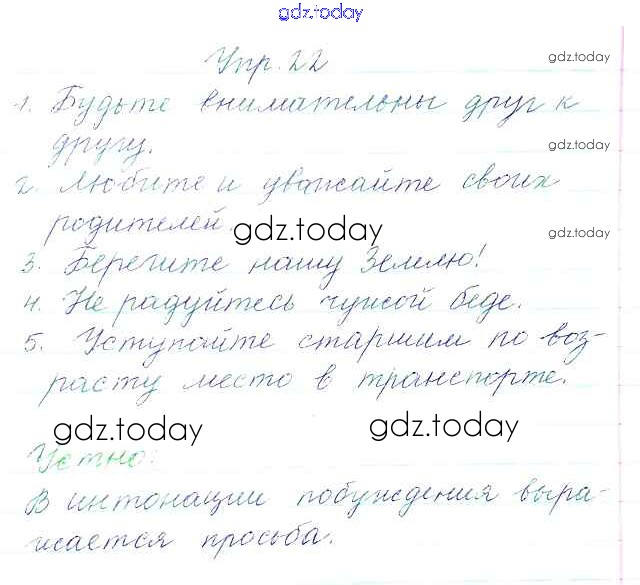 gdz.today
Упр. 22
gdz.today
1. Будьте внимательны друг к
другу.
gdz.today
2. Любите и уважайте своих
родителей.
gdz.today
gdz.today
3. Берегите нашу Землю!
4. Не радуйтесь чужой беде.
5. Уступайте старшим по воз-
расту место в транспорте.
gdz.today
gdz.today
Устно:
В интонации побуждения выра-
жается просьба.